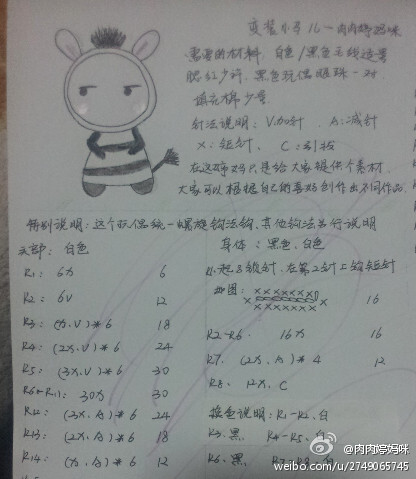 变装小子儿一肉肉婷妈咪
需要的材料: 白色/黑色毛线适量
腮红少许. 黑色玩偶眼珠一对
填充棉少量
针法说明: V:加针 A:减针
X:短针, C:引拔
在这婷妈只是给大家提供个素材
大家可以根据自己的喜好创作出不同作品
特别说明:这个玩偶统一螺旋钩法钩,其他钩法另行说明
头部: 白色
R1: 6X 6
R2: 6V 12
R3: (X.V)*6 18
R4: (2X.V)*6 24
R5: (3X.V)*6 30
R6-R11: 30X 30
R12: (3X.A)*6 24
R13: (2X.A)*6 18
R14: (X.A)*6 12
身体: 黑色、白色
R1:起8锁针,在第2针上钩短针
如图: 16
R2-R6. 16X 16
R7. (2X.A)*4 12
R8. 12X.C
换色说明: R1-R2.白
R3.黑. R4-R5.白
R6.黑. R7-R8.白
@肉肉婷妈咪
weibo.com/u/2749065745